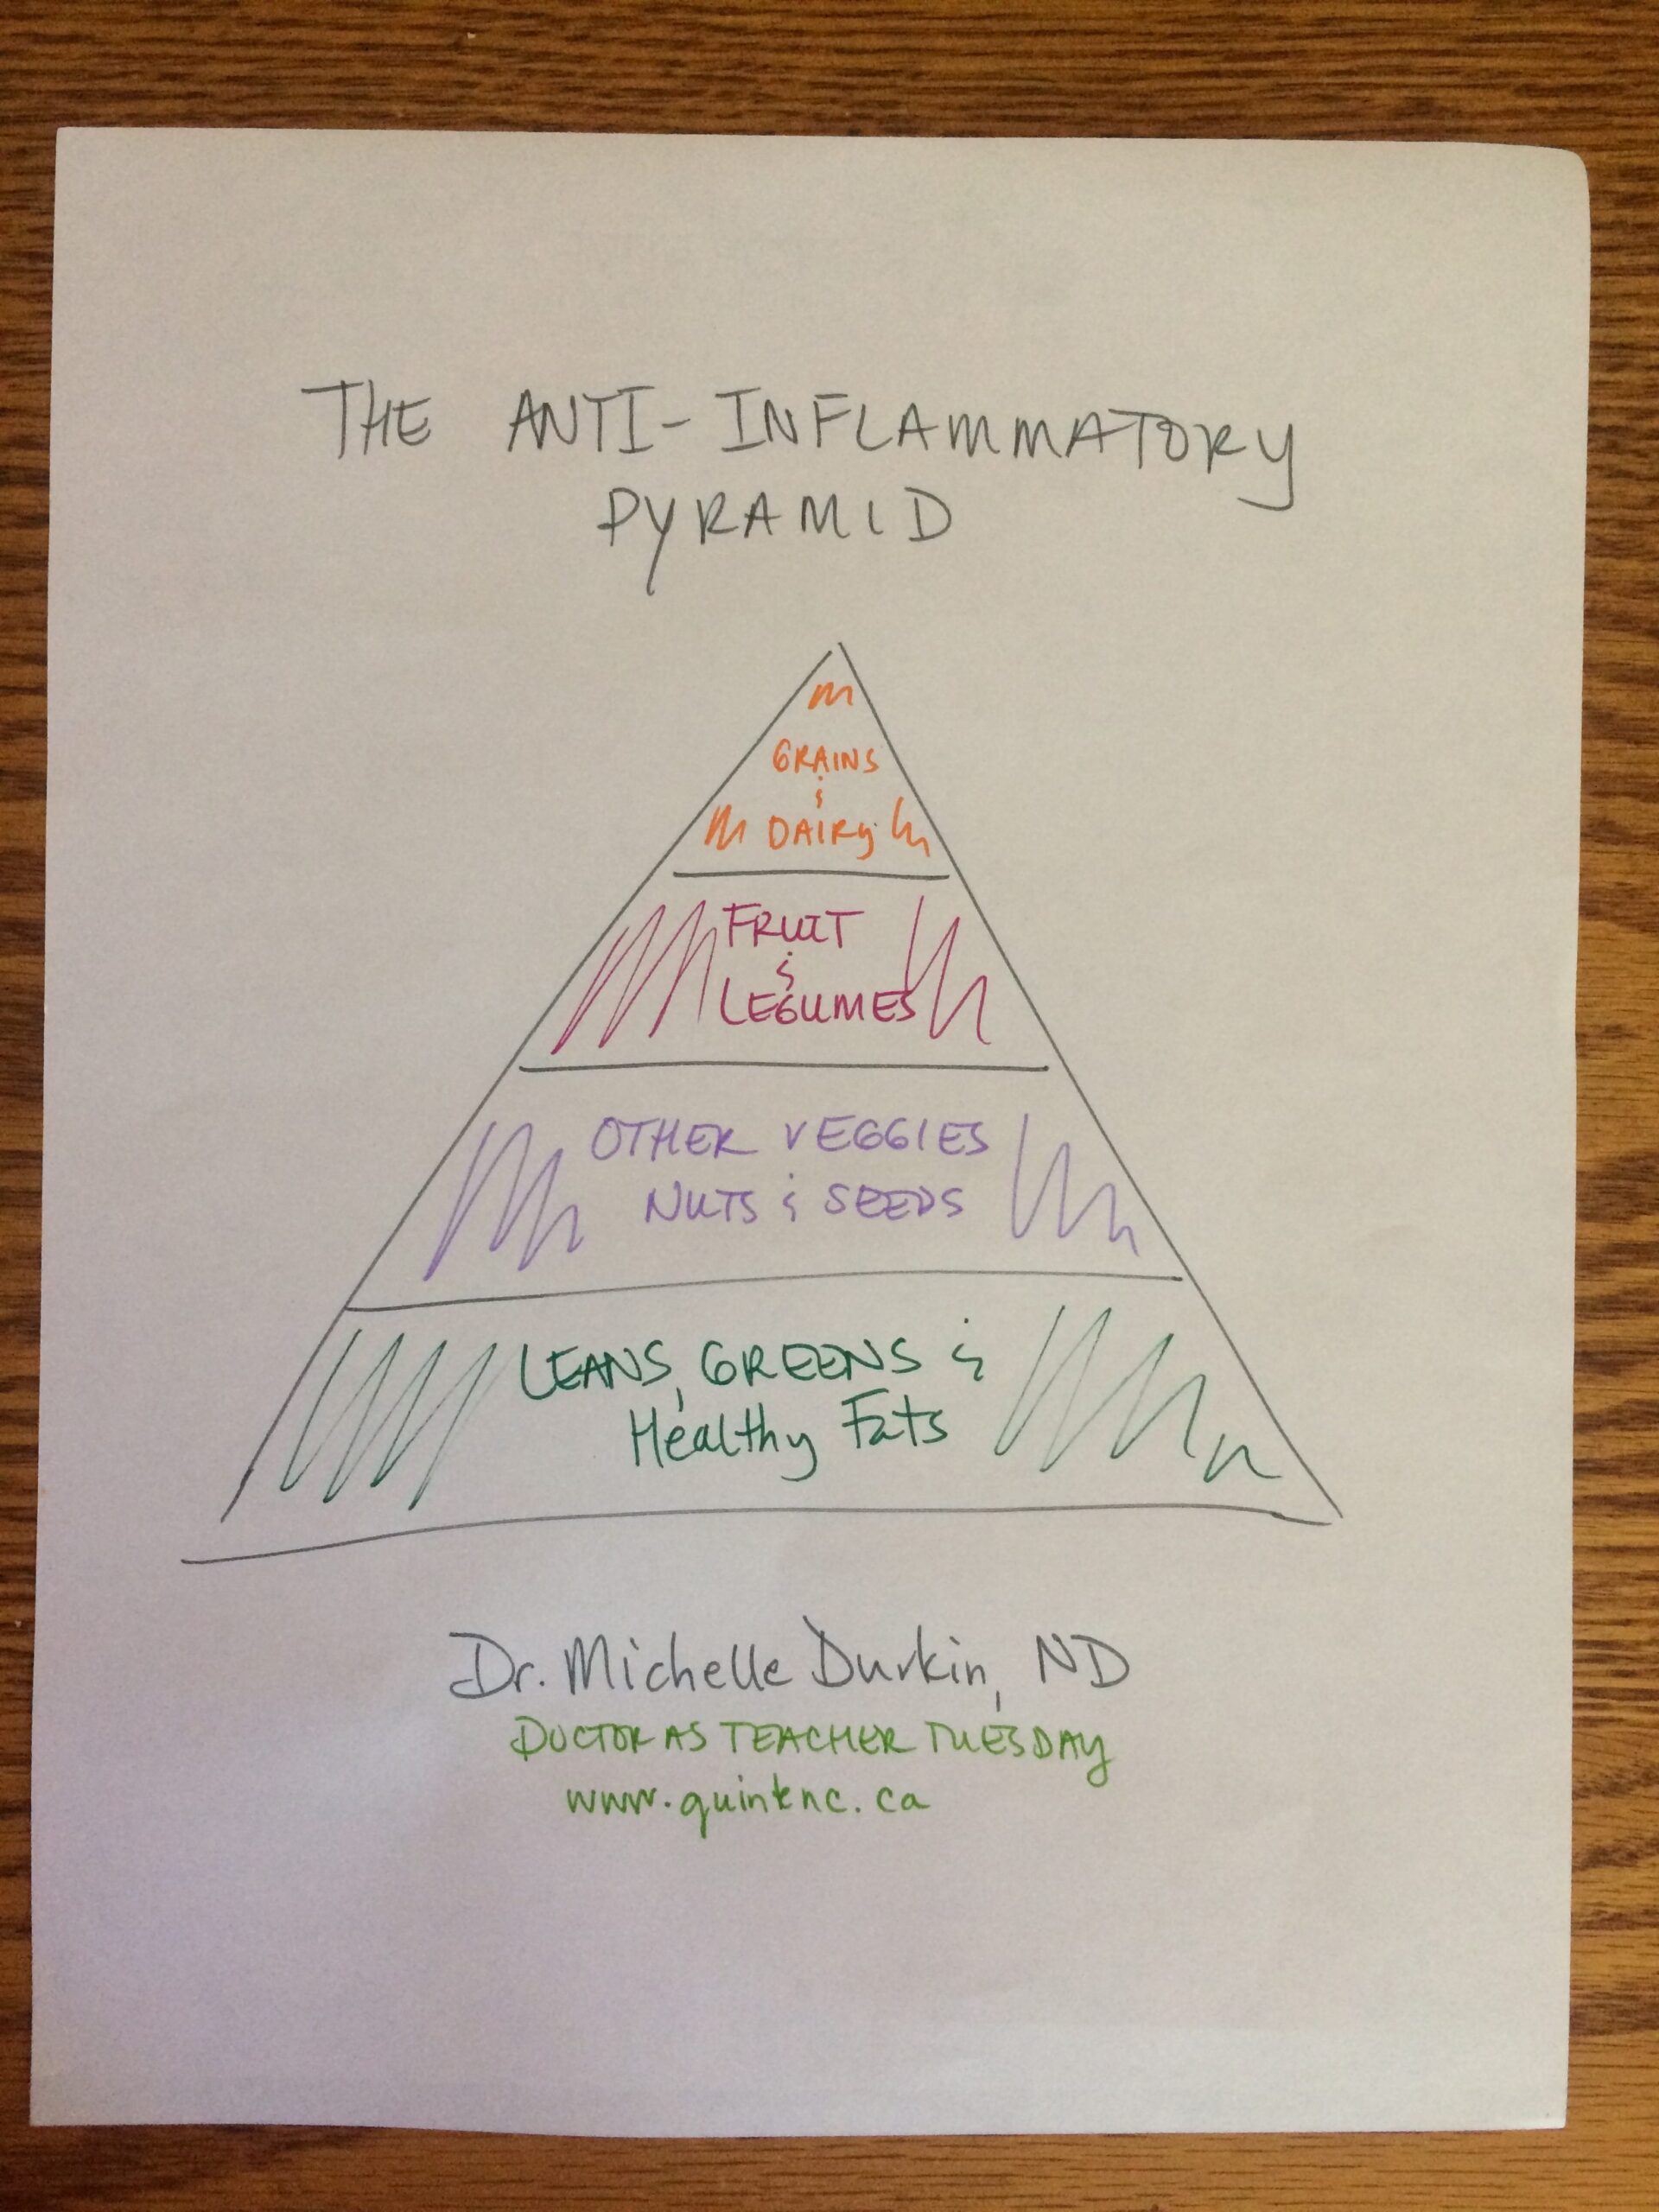 THE ANTI-INFLAMMATORY
PYRAMID
GRAINS
&
DAIRY
FRUIT
&
LEGUMES
OTHER VEGGIES
NUTS & SEEDS
LEANS, GREENS &
Healthy Fats
Dr. Michelle Durkin, ND
DOCTOR AS TEACHER TUESDAY
www.quintenc.ca